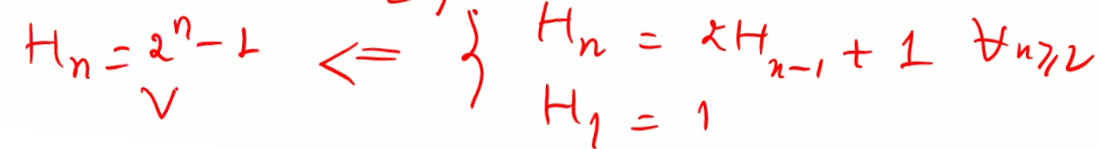 Hₙ = 2ⁿ - 1 <= { Hₙ = 2Hₙ₋₁ + 1 ∀n⩾2
V H₁ = 1